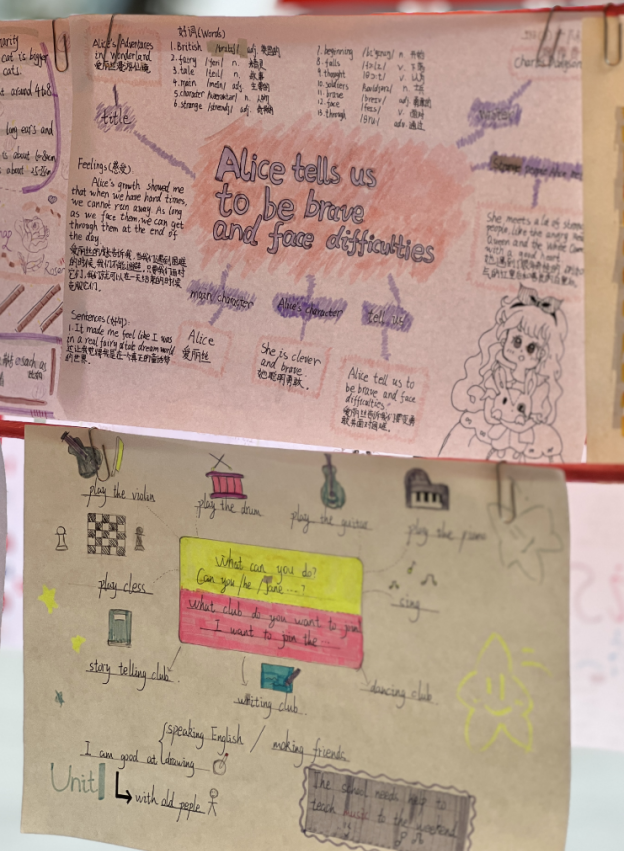 cat is bigger
cats.
around 4to8
long ears and
is about
is about
Alice's Adventures
in Wonderland
爱丽丝漫游仙境
title
好词(Words)
1. British /britiʃ/ adj. 英国的
2. fairy n.
3. tale /teil/ n. 故事
4. main /mein/ adj. 主要的
5. character n. 人物
6. strange adj. 奇怪的
7. beginning n. 开始
8. falls v.
9. thought v. 认为
10. soldiers n. 士兵
11. brave adj. 勇敢的
12. face v. 面对
13. through adv. 通过
Alice tells us
to be brave
and face difficulties
Feelings(感受)
Alice's growth showed me
that when we have hard times,
we cannot run away. As long
as we face them, we can get
through them at the end of
the day
爱丽丝的成长告诉我,当我们遇到困难
的时候,我们不能逃避,只要我们面对
它们,我们就可以在一天结束的时候
克服它们.
Sentences(好句)
1. It made me feel like I was
in a real fairy dream world
的世界.
main character
Alice
爱丽丝
Alice's character
She is clever
and brave
她聪明勇敢.
tell us
Alice tell us to
be brave and face
difficulties
爱丽丝告诉我们要勇
敢去面对困难.
She meets a lot of
people, like the angry
Queen and the White
with a good heart
play the violin
play the drum
play the guitar
play the piano
play cless
What can you do?
Can you/he/Jane....?
What club do you want to join
I want to join the
sing
story telling club.
writing club.
dancing club.
I am good at
speaking English / making friends
drawing
with old peple
Unit 1
The school needs help to
teach music